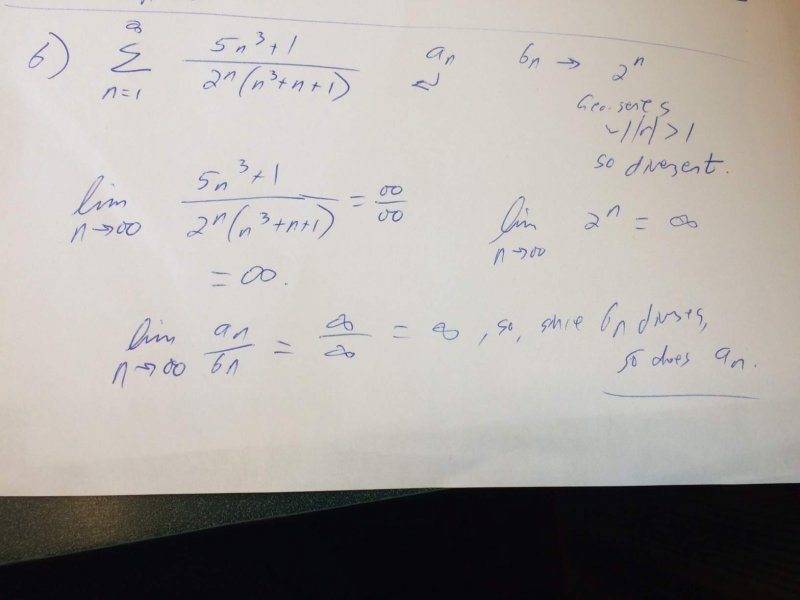 6) ∞ Σ n=1 5n³+1 / 2ⁿ(n³+n+1) aₙ bₙ → 2ⁿ
Geo. series
|r| > 1
so divergent.
lim n→∞ 5n³+1 / 2ⁿ(n³+n+1) = ∞/∞
lim n→∞ 2ⁿ = ∞
= ∞.
lim n→∞ aₙ/bₙ = ∞/∞ = ∞, so, since bₙ diverges,
so does aₙ.